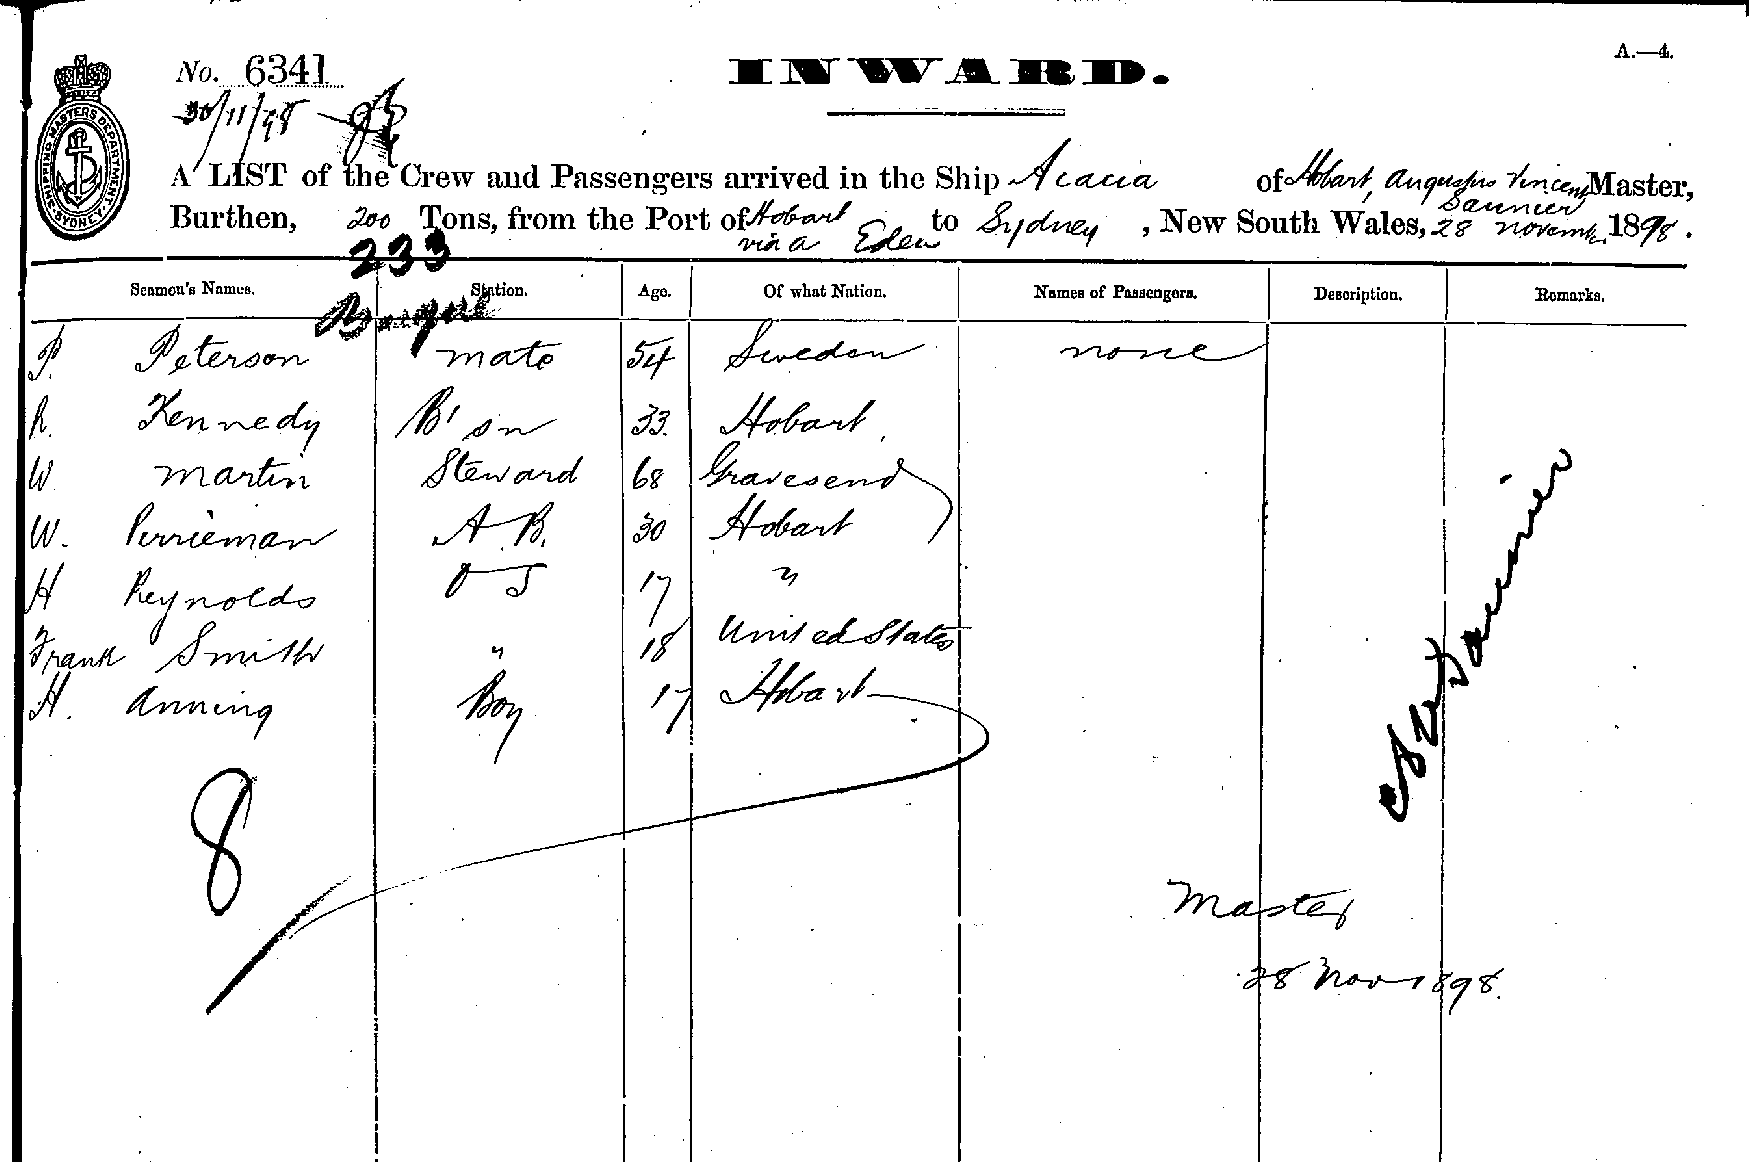 A.—4.
No. 6341
INWARD.
30/11/98
SHIPPING MASTERS DEPARTMENT. SYDNEY.
A LIST of the Crew and Passengers arrived in the Ship Acacia of Hobart, Augustus Vincent Saunier Master,
Burthen, 200 Tons, from the Port of Hobart via Eden to Sydney, New South Wales, 28 November 1898.
233
Barque
Seamen's Names. Station. Age. Of what Nation. Names of Passengers. Description. Remarks.
P. Peterson mate 54 Sweden none
R. Kennedy B'sn 33. Hobart
W Martin Steward 68 Gravesend
W. Perrieman A.B. 30 Hobart
H Reynolds O S 17 "
Frank Smith " 18 United States
H. Anning Boy 17 Hobart
Saunier
8
Master
28 Nov 1898.